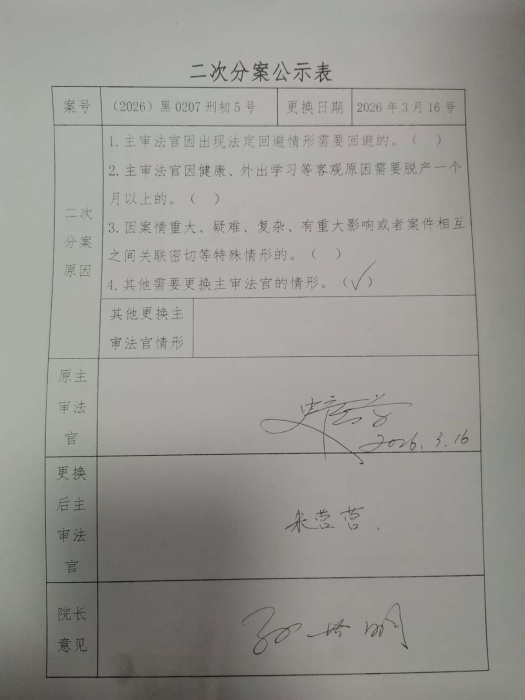 二次分案公示表
案号 （2026）黑0207刑初5号 更换日期 2026年3月16号
二次分案原因
1.主审法官因出现法定回避情形需要回避的。（ ）
2.主审法官因健康、外出学习等客观原因需要脱产一个
月以上的。（ ）
3.因案情重大、疑难、复杂、有重大影响或者案件相互
之间关联密切等特殊情形的。（ ）
4.其他需要更换主审法官的情形。（✓）
其他更换主
审法官情形
原主
审法
官
2026.3.16
更换
后主
审法
官
朱营营
院长
意见